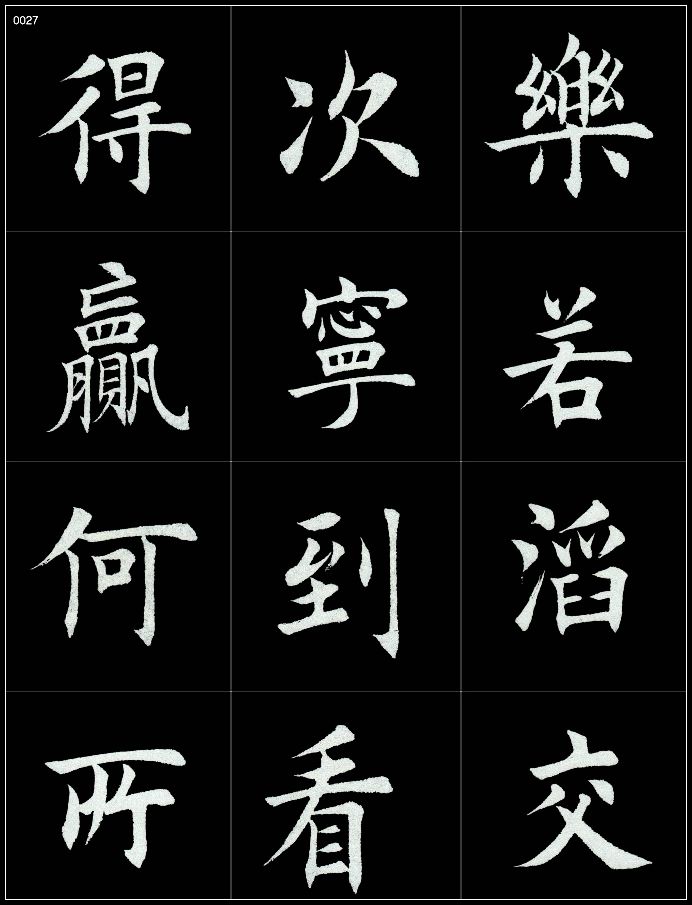 0027
得次樂
贏寧若
何到滔
所看交